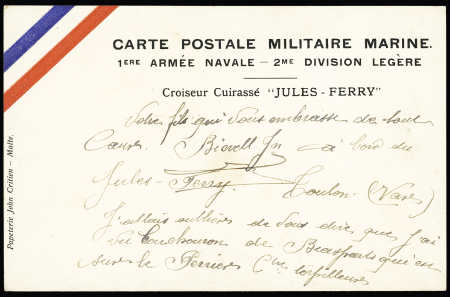 CARTE POSTALE MILITAIRE MARINE.
1ERE ARMÉE NAVALE — 2ME DIVISION LEGÈRE
Croiseur Cuirassé "JULES-FERRY"
Votre fils qui vous embrasse de tout
Cœur. à bord du
Jules-Ferry. Toulon-(Var)
J'allais oublier de vous dire que j'ai
vu de Brasparts qui est
sur le torpilleurs
Papeterie John Critien — Malte.